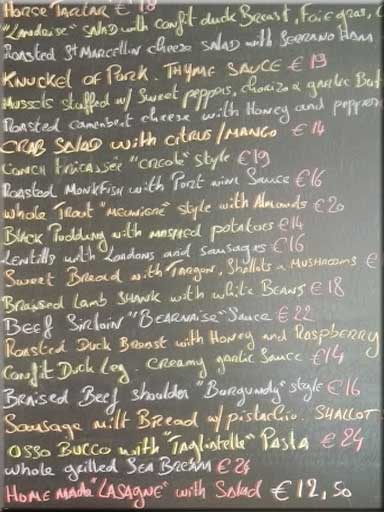 HORSE TARTAR € 18
"Landaise" SALAD with confit duck Breast, Foie gras,
Roasted St Marcellin cheese SALAD with SERRANO HAM
KNUCKEL OF PORK. THYME SAUCE € 19
Mussels stuffed w/ Sweet peppers, chorizo & garlic But
Roasted camembert cheese with Honey and pepper
CRAB SALAD with citrus/MANGO € 14
CONCH FRICASSÉE "CREOLE" style € 19
Roasted Monkfish with Port wine Sauce € 16
whole Trout "meunière" style with Almonds € 20
Black Pudding with mashed potatoes € 14
Lentills with Lardons and sausages € 16
Sweet Bread with Targon, Shellots & MUSHROOMS €
Braised Lamb SHANK with white BEANS € 18
Beef Sirloin "BEARNAISE" Sauce € 22
Roasted Duck Breast with Honey and Raspberry
Confit Duck Leg. Creamy garlic Sauce € 14
Braised Beef shoulder "Burgundy" style € 16
Sausage milt Bread w/pistachio. SHALLOT
OSSO BUCCO with "Tagliatelle" Pasta € 24
whole grilled SEA BREAM € 26
HOME MADE "LASAGNE" with Salad € 12,50